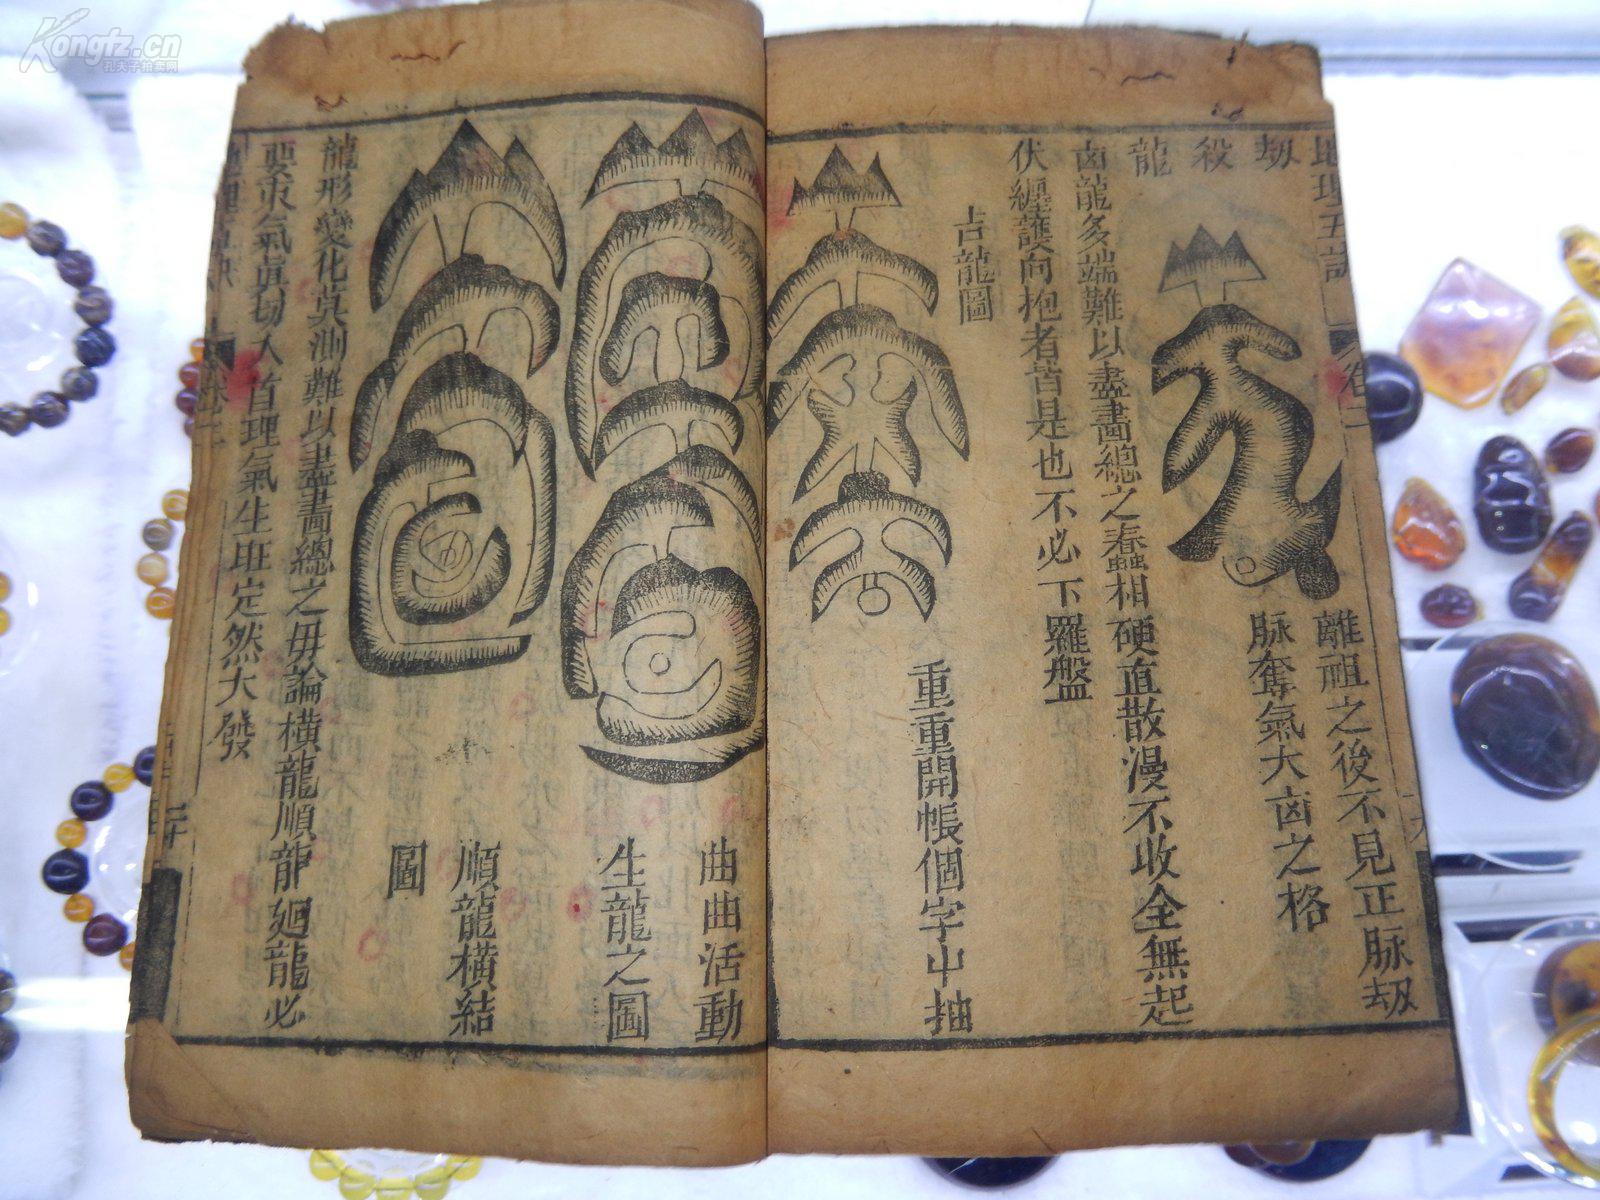 Kongfz.cn
孔夫子拍卖网
地理五訣
卷二
劫殺龍
離祖之後不見正脉刼
脉奪氣大卤之格
卤龍多端難以盡畫總之蠢粗硬直散漫不收全無起
伏纏護向抱者皆是也不必下羅盤
吉龍圖
重重開帳個字中抽
曲曲活動
生龍之圖
順龍橫結
圖
龍形變化莫測難以盡畫總之毋論橫龍順龍廻龍必
要束氣真切入首理氣生旺定然大發